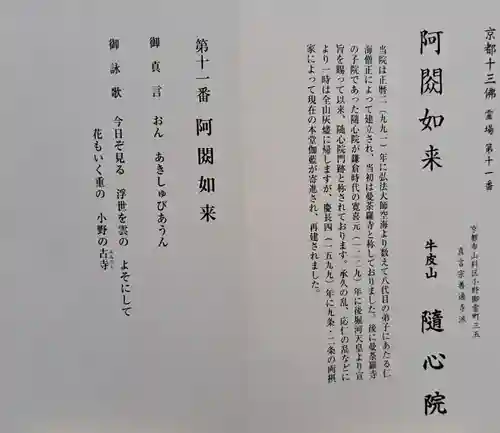 京都十三佛 霊場 第十一番
阿閦如来
京都市山科区小野御霊町三五
真言宗善通寺派
牛皮山 隨心院
当院は正暦二（九九一）年に弘法大師空海より数えて八代目の弟子にあたる仁
海僧正によって建立され、当初は曼荼羅寺と称しておりました。後に曼荼羅寺
の子院であった隨心院が鎌倉時代の寛喜元（一二二九）年に後堀河天皇より宣
旨を賜って以来、随心院門跡と称されております。承久の乱、応仁の乱などに
より一時は全山灰燼に帰しますが、慶長四（一五九九）年に九条・二条の両摂
家によって現在の本堂伽藍が寄進され、再建されました。
第十一番 阿閦如来
御真言 おん あきしゅびあうん
御詠歌 今日ぞ見る 浮世を雲の よそにして
花もいく重の 小野の古寺